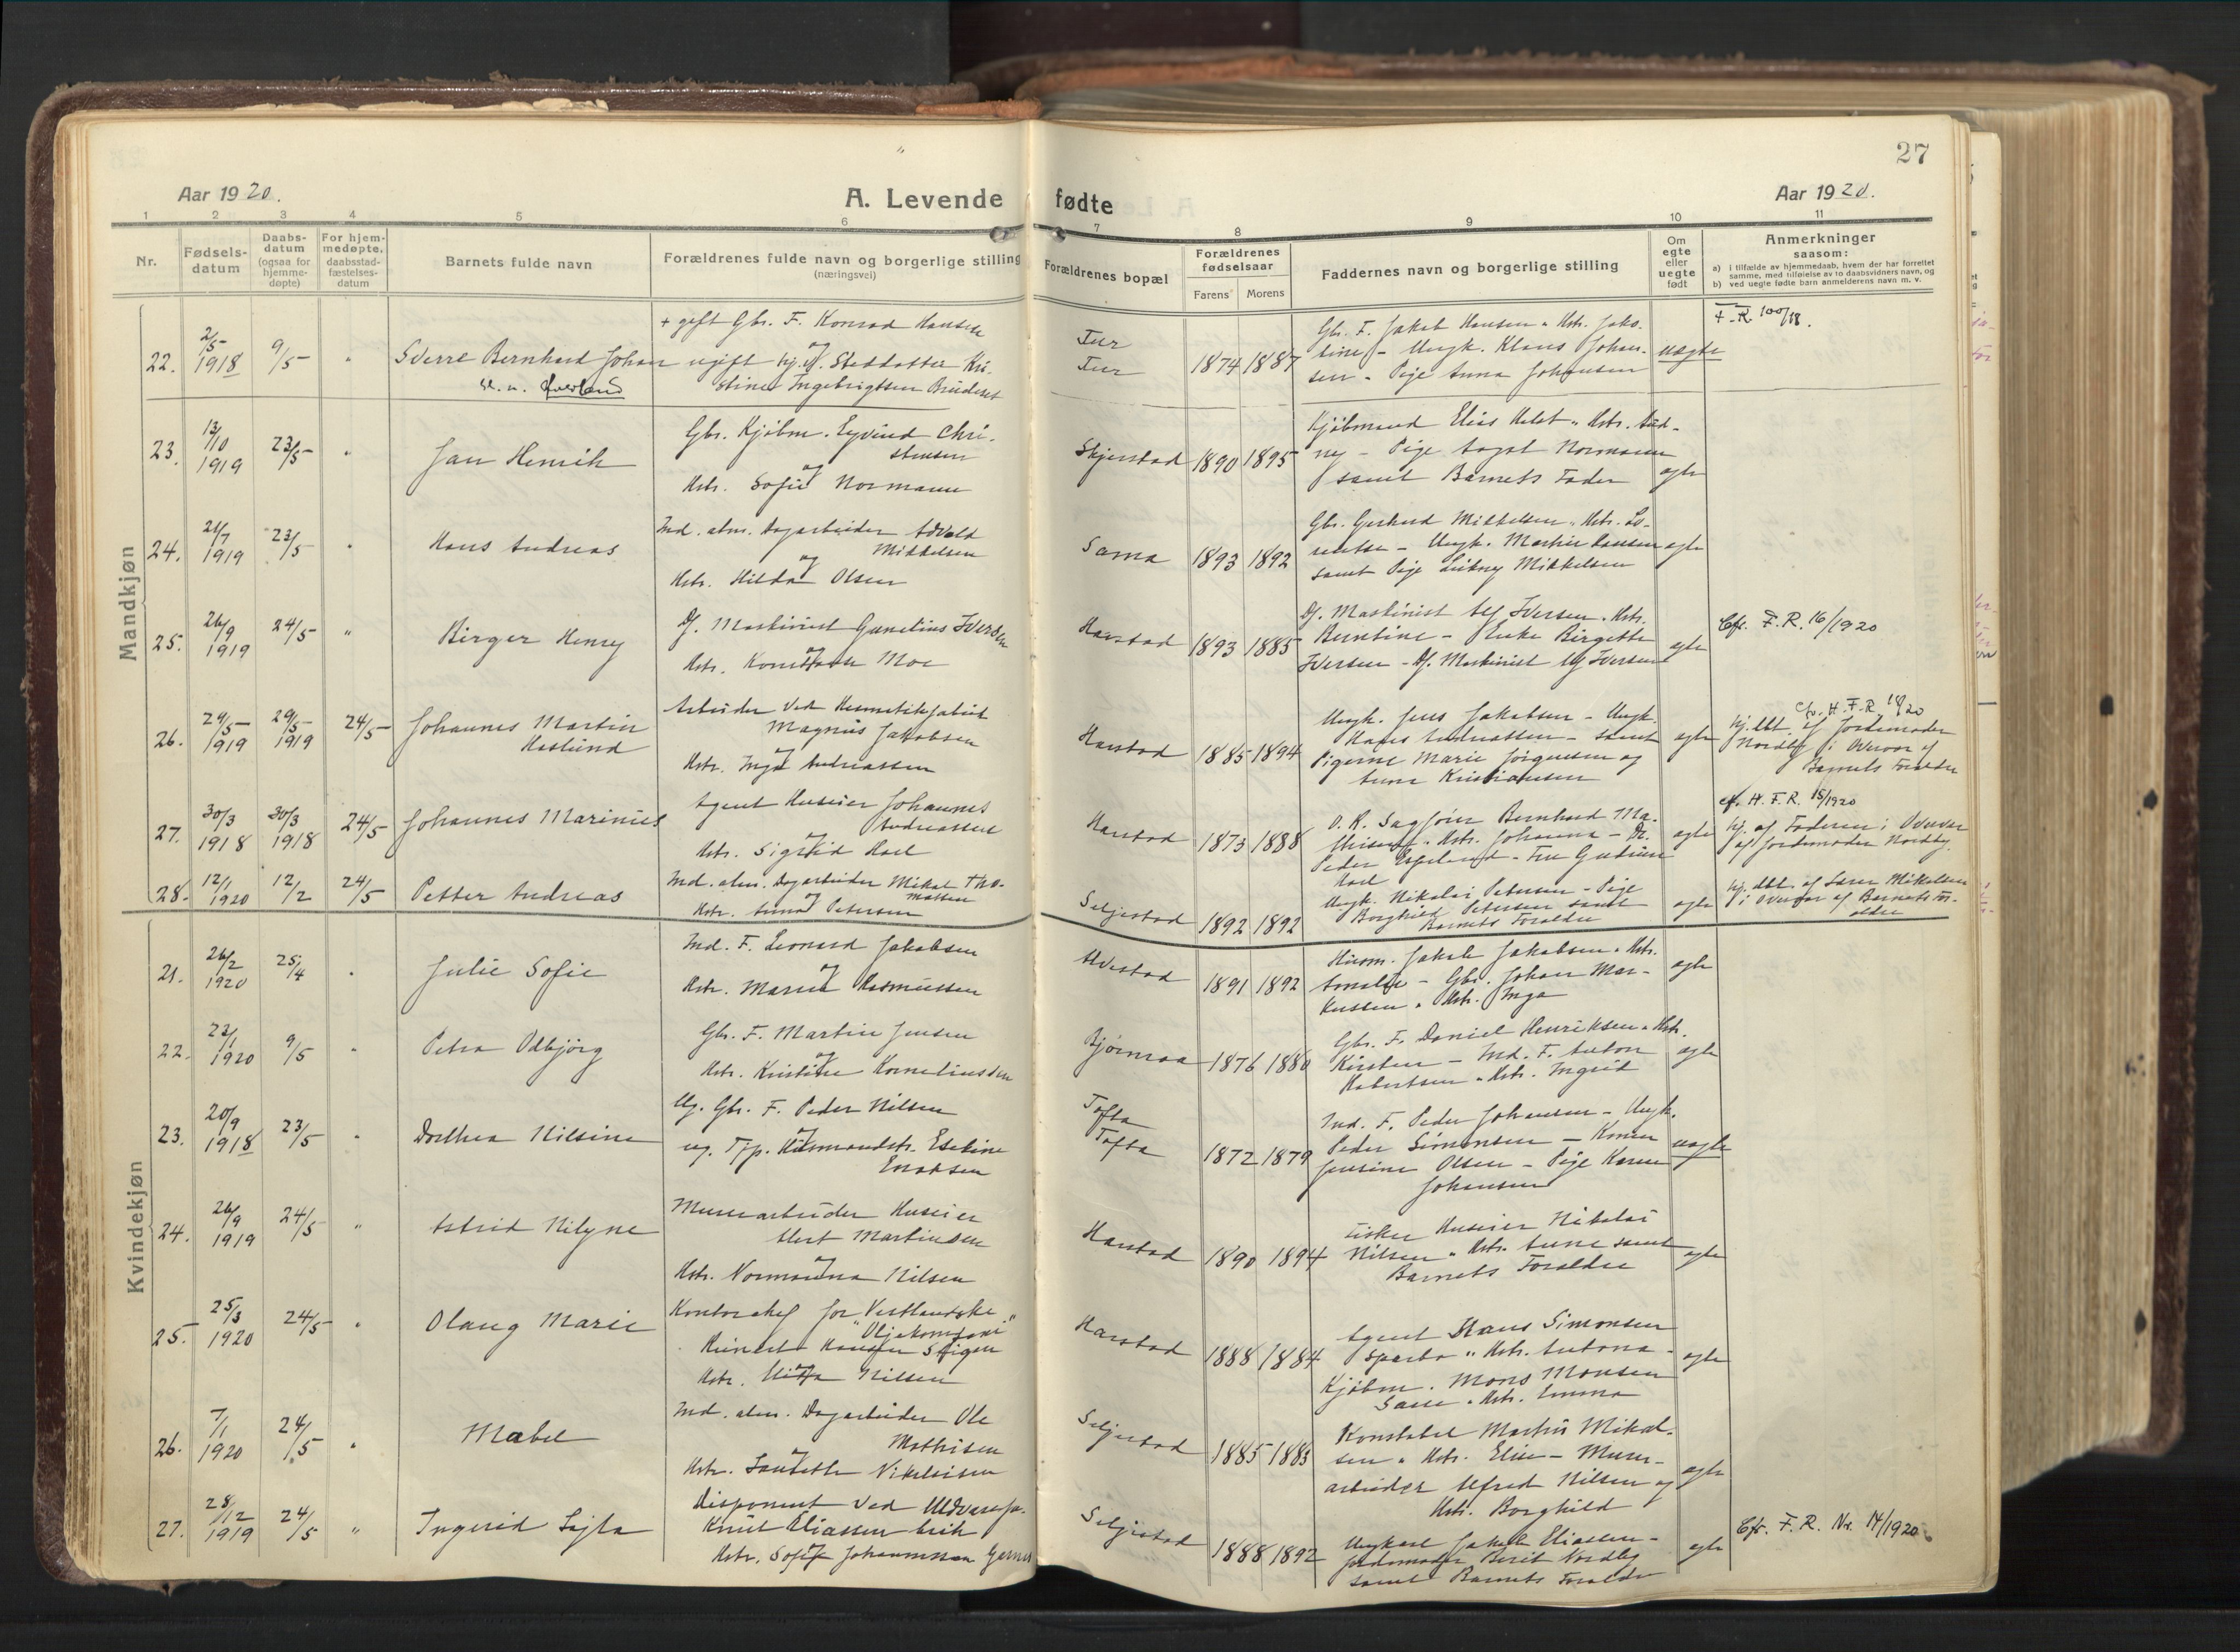 27
Aar 1920.
A. Levende fødte
Aar 1920.
1 2 3 4 5 6 7 8 9 10 11
Nr.
Fødsels-
datum
Daabs-
datum
(ogsaa for
hjemme-
døpte)
For hjem-
medøpte.
daabsstad-
fæstelses-
datum
Barnets fulde navn
Forældrenes fulde navn og borgerlige stilling
(næringsvei)
Forældrenes bopæl
Forældrenes
fødselsaar
Farens
Morens
Faddernes navn og borgerlige stilling
Om
egte
eller
uegte
født
Anmerkninger
saasom:
a) i tilfælde av hjemmedaab, hvem der har forrettet
samme, med tilføielse av to daabsvidners navn, og
b) ved uegte fødte barn anmelderens navn m. v.
Mandkjøn
22. 2/5 1918 9/5 "
Sverre Bernhard Johan
+ gift Gbr. F. Konrad Hansen
og
ugift hj. v. Steddatter Kri-
stine Ingebrigtsen
1874 1887
Gbr. F. Jakob Hansen " Hstr. Jako-
bine - Ungk. Klaus Johan-
sen - Pige Anna Johansen
uægte
F. R. 100/18.
23. 13/10 1919 23/5 "
Jan Henrik
Gbr. Kjøbm. Eyvind Chri-
stensen
og
Hstr. Sofie Normann
Skjerstad 1890 1895
Kjøbmand Elias " Hstr.
Pige Normann
samt Barnets Fader
ægte
24. 21/7 1919 23/5 "
Hans Andreas
Ind. alm. Dagarbeider
Mikkelsen
og
Hstr. Hilda Olsen
Sama 1893 1892
Gbr. Gerhard Mikkelsen " Hstr. Lo-
rentse - Ungk. Martin Hansen
samt Pige Mikkelsen
ægte
25. 26/9 1919 24/5 "
Birger Henry
Df. Maskinist Iversen
og
Hstr. Moe
Harstad 1893 1885
Df. Maskinist Alf Iversen " Hstr.
Berntine - Enke Birgitte
Iversen - Df. Maskinist Alf Iversen
ægte
Cfr. F. R. 16/1920
26. 24/5 1919 29/5 1919 24/5
Johannes Martin
Haslund
Arbeider ved Hermetikfabrik
Magnus Jakobsen
og
Hstr. Inga Andreassen
Harstad 1885 1894
Ungk. Jens Jakobsen - Ungk.
Hans Andreassen - samt
Pigerne Marie Jørgensen og
Anna Kristiansen
ægte
hj. dbt. af Jordemoder
Nordby i Overvær af
Barnets Forældre
27. 30/3 1918 30/3 1918 24/5
Johannes Marinius
Agent Huseier Johannes
Andreassen
og
Hstr. Sigrid
Harstad 1873 1888
O. R. Sagfører Bernhard Ma-
thisen " Hstr. Johanna - Dr.
Peder - Fru Gudrun
ægte
cfr. H. F. R. 15/1920
hj. af Faderen i Overvær
af Jordemoder Nordby.
28. 12/1 1920 12/2 24/5
Petter Andreas
Ind. alm. Dagarbeider Mikal Tho-
massen
og
Hstr. Anna Petersen
Seljestad 1892 1892
Ungk. Nikolai Petersen - Pige
Borghild Petersen samt
Barnets Forældre
ægte
hj. dbt. af Mikkelsen
i Overvær af Barnets For-
ældre
Kvindekjøn
21. 26/2 1920 25/4 "
Julie Sofie
Ind. F. Leonard Jakobsen
og
Hstr. Marie Rasmussen
1891 1892
Husm. Jakob Jakobsen " Hstr.
- Gbr. Johan Mar-
kussen " Hstr. Inga
ægte
22. 23/1 1920 9/5 "
Petra Odbjørg
Gbr. F. Martin Jensen
og
Hstr. Kristine Korneliussen
Bjørnraa 1876 1880
Gbr. F. Daniel Henriksen " Hstr.
Kirsten - Ind. F. Anton
" Hstr. Ingrid
ægte
23. 20/9 1918 23/5 "
Dorthea Nilsine
Ug. Gbr. F. Peder Nilsen
og
ug. Tjp. Husmandsdtr. Esekine
Enoksen
Tofta
Tofta 1872 1879
Ind. F. Peder Johansen - Ungk.
Peder Simonsen - Konen
Jensine Olsen - Pige Karen
Johansen
uægte
24. 26/9 1919 24/5 "
Astrid Nilyne
Murerarbeider Huseier
Martinsen
og
Hstr. Normanna Nilsen
Harstad 1890 1894
Fisker Huseier Nikolai
Nilsen " Hstr. Anne samt
Barnets Forældre
ægte
25. 25/3 1920 24/5 "
Olaug Marie
Kontorchef for "Vestlandske
Oljekompani"
Reinert Hansen
og
Hstr. Nilsen
Harstad 1888 1884
Agent Hans Simonsen
Sparbo " Hstr. Antona -
Kjøbm. Mons Monsen
" Hstr. Emma
ægte
26. 7/1 1920 24/5 "
Mabel
Ind. alm. Dagarbeider Ole
Mathisen
og
Hstr. Nikolaisen
Seljestad 1885 1883
Konstabel Martin Mikal-
sen " Hstr. Elise - Murer-
arbeider Alfred Nilsen og
Hstr. Borghild
ægte
27. 28/12 1919 24/5 "
Ingerid
Disponent ved Uldvarefa-
brik Knut Eliassen
og
Hstr. Sofie Johannessen
Seljestad 1888 1892
Ungkarl Jakob Eliassen -
Jordemoder Berit Nordby
samt Barnets Forældre
ægte
Cfr. F. R. Nr. 14/1920